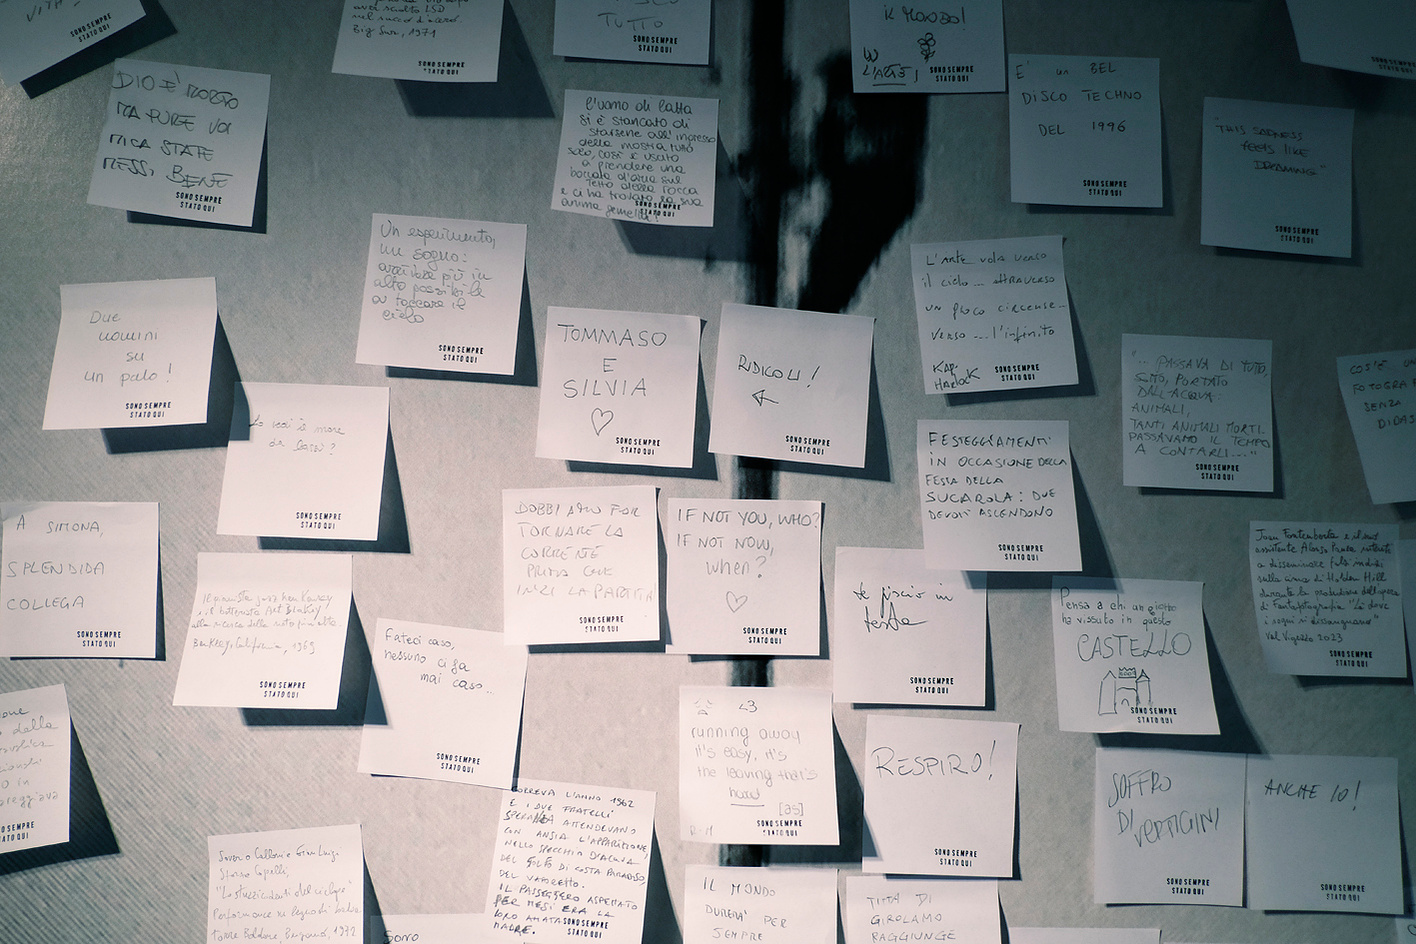 VITA
SONO SEMPRE
STATO QUI
LSD
Big Sur, 1971
SONO SEMPRE
STATO QUI
TUTTO
SONO SEMPRE
STATO QUI
IL MONDO!
W
L'ARTE!
SONO SEMPRE
STATO QUI
SONO SEMPRE
STATO QUI
DIO È MORTO
MA PURE VOI
MICA STATE
MESSI BENE
SONO SEMPRE
STATO QUI
l'uomo di latta
si è stancato di
starsene all'ingresso
della mostra tutto
solo, così è uscito
a prendere una
boccata d'aria sul
tetto della rocca
e ci ha trovato la sua
anima gemella!
SONO SEMPRE
STATO QUI
E' un BEL
DISCO TECHNO
DEL 1996
SONO SEMPRE
STATO QUI
"THIS SADNESS
feels LIKE
DREAMING"
SONO SEMPRE
STATO QUI
Un esperimento,
un sogno:
arrivare più in
alto possibile
a toccare il
cielo
SONO SEMPRE
STATO QUI
L'Arte vola verso
il cielo... attraverso
un gioco circense...
verso ... l'infinito
KAP.
HARLOCK
SONO SEMPRE
STATO QUI
Due
uomini
su
un palo!
SONO SEMPRE
STATO QUI
TOMMASO
E
SILVIA
SONO SEMPRE
STATO QUI
RIDICOLI!
SONO SEMPRE
STATO QUI
".. PASSAVA DI TUTTO,
SOTTO, PORTATO
DALL'ACQUA:
ANIMALI,
TANTI ANIMALI MORTI.
PASSAVAMO IL TEMPO
A CONTARLI..."
SONO SEMPRE
STATO QUI
COS'È UNA
FOTOGRA
SENZA
DIDAS
Lo vedi il mare
da lassù?
SONO SEMPRE
STATO QUI
FESTEGGIAMENTI
IN OCCASIONE DELLA
FESTA DELLA
SUCAROLA: DUE
DEVOTI ASCENDONO
SONO SEMPRE
STATO QUI
A SIMONA,
SPLENDIDA
COLLEGA
SONO SEMPRE
STATO QUI
DOBBIAMO FAR
TORNARE LA
CORRENTE
PRIMA CHE
INIZI LA PARTITA!
SONO SEMPRE
STATO QUI
IF NOT YOU, WHO?
IF NOT NOW,
when?
SONO SEMPRE
STATO QUI
te piscio in
testa
SONO SEMPRE
STATO QUI
Joan Fontcuberta e il suo
assistente Alonso
a disseminare falsi indizi
sulla cima di Holden Hill
durante la produzione dell'opera
di Fantafotografia "Là dove
i sogni si dissanguano"
Val Vigezzo 2023
SONO SEMPRE
STATO QUI
Il pianista jazz
e il batterista Art Blakey
alla ricerca della nota più alta.
Berkeley, California, 1969
SONO SEMPRE
STATO QUI
Pensa a chi un giorno
ha vissuto in questo
CASTELLO
SONO SEMPRE
STATO QUI
Fateci caso,
nessuno ci fa
mai caso...
SONO SEMPRE
STATO QUI
della
SONO SEMPRE
STATO QUI
<3
running away
it's easy, it's
the leaving that's
hard
SONO SEMPRE
STATO QUI
RESPIRO!
SONO SEMPRE
STATO QUI
SOFFRO
DI VERTIGINI
SONO SEMPRE
STATO QUI
ANCHE IO!
SONO SEMPRE
STATO QUI
CORREVA L'ANNO 1962
E I DUE FRATELLI
SPERANZA ATTENDEVANO
CON ANSIA L'APPARIZIONE,
NELLO SPECCHIO D'ACQUA
DEL GOLFO DI COSTA PARADISO,
DEL VAPORETTO.
IL PASSEGGERO ASPETTATO
PER MESI ERA LA
LORO AMATA
MADRE.
SONO SEMPRE
STATO QUI
Saverio Calloni e Gian Luigi
Storso Capelli,
"Lo stuzzicadenti del ciclope"
Performance su legno di
Torre Boldone, Bergamo, 1972
Sono
IL MONDO
DURERA' PER
SEMPRE
TITTA DI
GIROLAMO
RAGGIUNGE